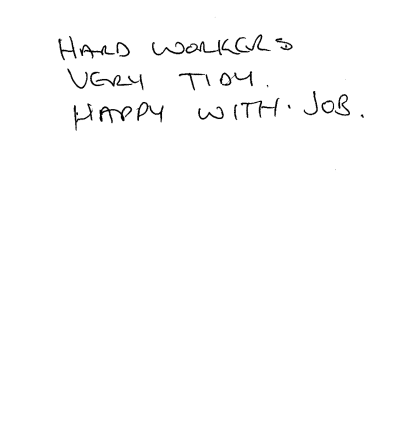 HARD WORKERS
VERY TIDY.
HAPPY WITH. JOB.